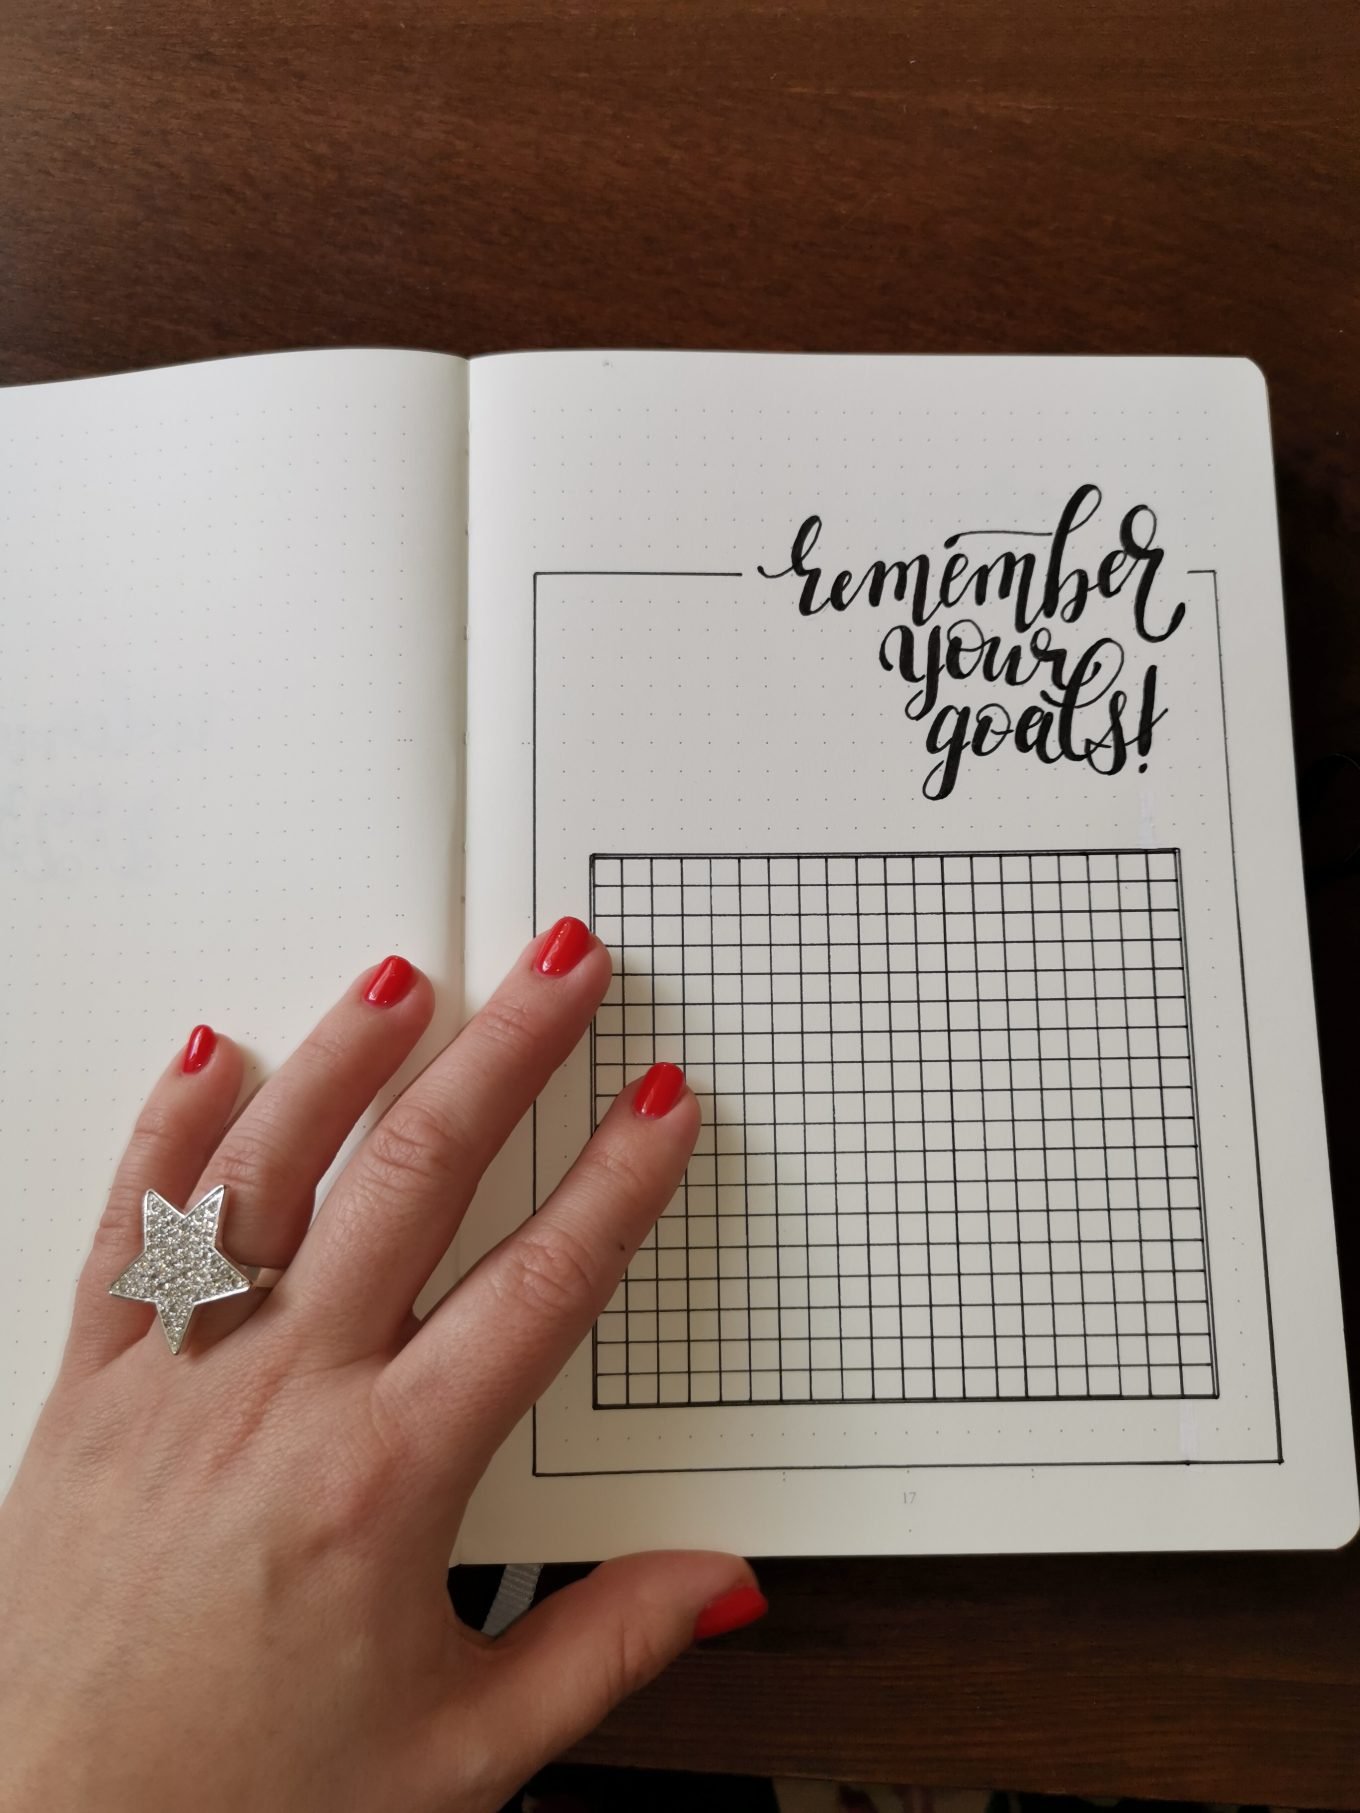 remember
your
goals!
17